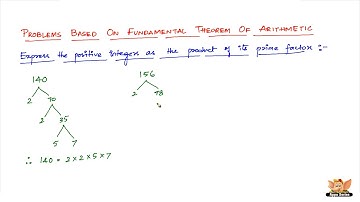 PROBLEMS BASED ON FUNDAMENTAL THEOREM OF ARITHMETIC
Express the positive integers as the product of its prime factor :-
140
2 70
2 35
5 7
∴ 140 = 2 × 2 × 5 × 7
156
2 78